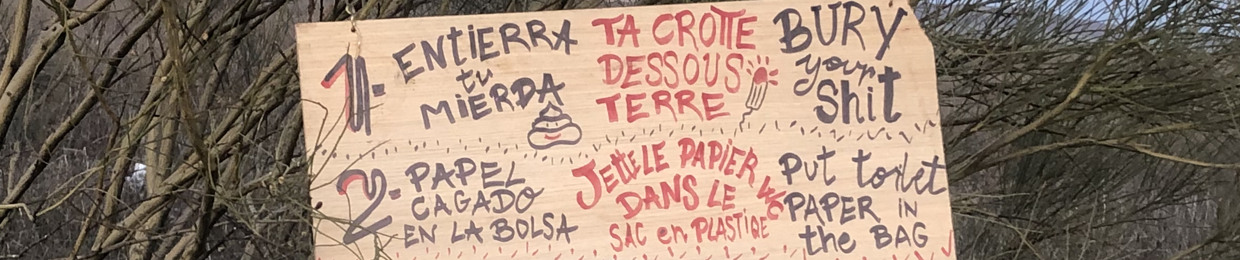 1- ENTIERRA
tu
MIERDA
TA CROTTE
DESSOUS
TERRE
BURY
your
Shit
2- PAPEL
CAGADO
EN LA BOLSA
JETTE LE PAPIER WC
DANS LE
SAC en PLASTIQE
Put toilet
PAPER iN
the BAG